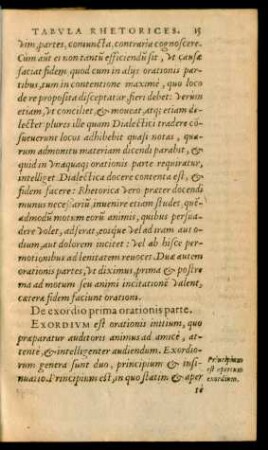 TABVLA RHETORICES. 15
vim, partes, coniuncta, contraria cognoscere.
Cum aūt ei non tantū efficiendū sit, vt causæ
faciat fidem, quod cum in alijs orationis par
tibus, tum in contentione maximè, quo loco
de re proposita disceptatur, fieri debet: verum
etiam, vt conciliet, & moueat, atq; etiam de-
lectet plures ille quam Dialectici tradere cō
sueuerunt locos adhibebit quasi notas, qua-
rum admonitu materiam dicendi parabit, &
quid in vnaquaq; orationis parte requiratur,
intelliget. Dialectica docere contenta est, &
fidem facere: Rhetorica vero præter docendi
munus necessariū, inuenire etiam studet, quē-
admodū motum eorū animis, quibus persua-
dere volet, adferat, eosque vel ad iram aut o-
dium, aut dolorem incitet: vel ab hisce per-
motionibus ad lenitatem reuocet. Duæ autem
orationis partes, vt diximus, prima & postre
ma ad motum seu animi incitationē valent,
cæteræ fidem faciunt orationi.
De exordio prima orationis parte.
EXORDIVM est orationis initium, quo
præparatur auditoris animus ad amicè, at-
tentè & intelligenter audiendum. Exordio-
rum genera sunt duo, principium & insi-
nuatio. Principium est, in quo statim & aper
Principium
est apertum
exordium.
te